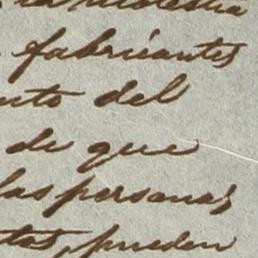 la molestia
fabricantes
nto del
de que
las personas
tas, pueden